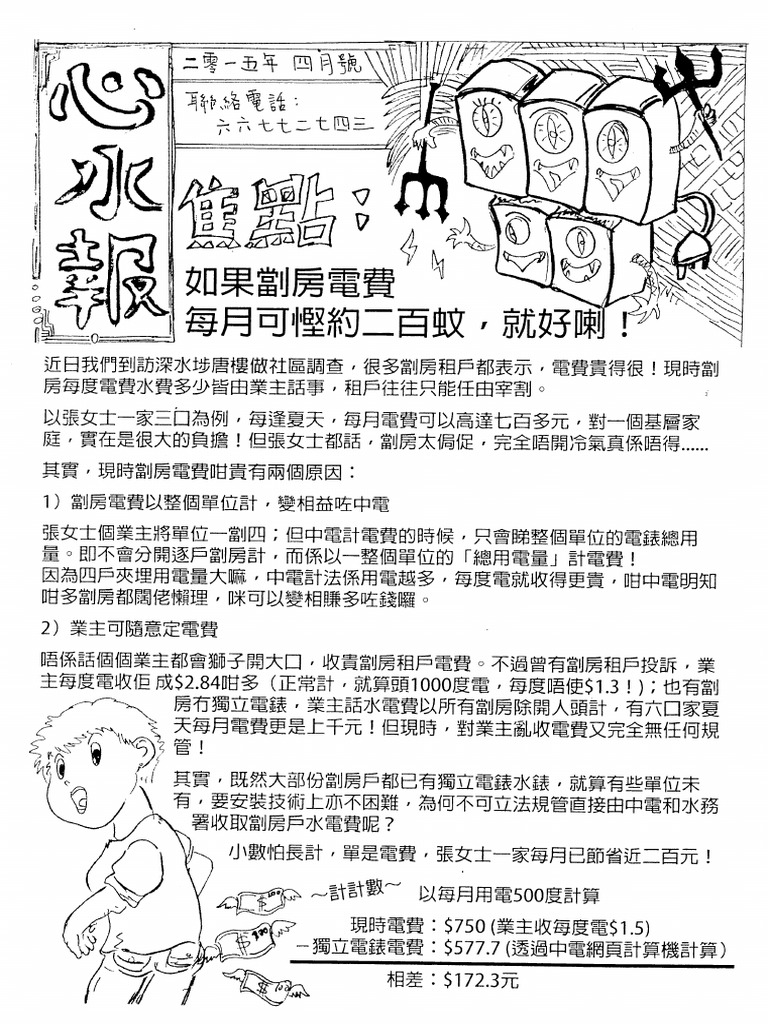 心水報
二零一五年 四月號
聯絡電話：
六六七七二七四三
焦點：
如果劏房電費
每月可慳約二百蚊，就好喇！
近日我們到訪深水埗唐樓做社區調查，很多劏房租戶都表示，電費貴得很！現時劏
房每度電費水費多少皆由業主話事，租戶往往只能任由宰割。
以張女士一家三口為例，每逢夏天，每月電費可以高達七百多元，對一個基層家
庭，實在是很大的負擔！但張女士都話，劏房太侷促，完全唔開冷氣真係唔得......
其實，現時劏房電費咁貴有兩個原因：
1）劏房電費以整個單位計，變相益咗中電
張女士個業主將單位一劏四；但中電計電費的時候，只會睇整個單位的電錶總用
量。即不會分開逐戶劏房計，而係以一整個單位的「總用電量」計電費！
因為四戶夾埋用電量大嘛，中電計法係用電越多，每度電就收得更貴，咁中電明知
咁多劏房都闊佬懶理，咪可以變相賺多咗錢囉。
2）業主可隨意定電費
唔係話個個業主都會獅子開大口，收貴劏房租戶電費。不過曾有劏房租戶投訴，業
主每度電收佢 成$2.84咁多（正常計，就算頭1000度電，每度唔使$1.3！)；也有劏
房冇獨立電錶，業主話水電費以所有劏房除開人頭計，有六口家夏
天每月電費更是上千元！但現時，對業主亂收電費又完全無任何規
管！
其實，既然大部份劏房戶都已有獨立電錶水錶，就算有些單位未
有，要安裝技術上亦不困難，為何不可立法規管直接由中電和水務
署收取劏房戶水電費呢？
小數怕長計，單是電費，張女士一家每月已節省近二百元！
～計計數～ 以每月用電500度計算
現時電費：$750 (業主收每度電$1.5)
－獨立電錶電費：$577.7 (透過中電網頁計算機計算）
相差：$172.3元
$100
$100